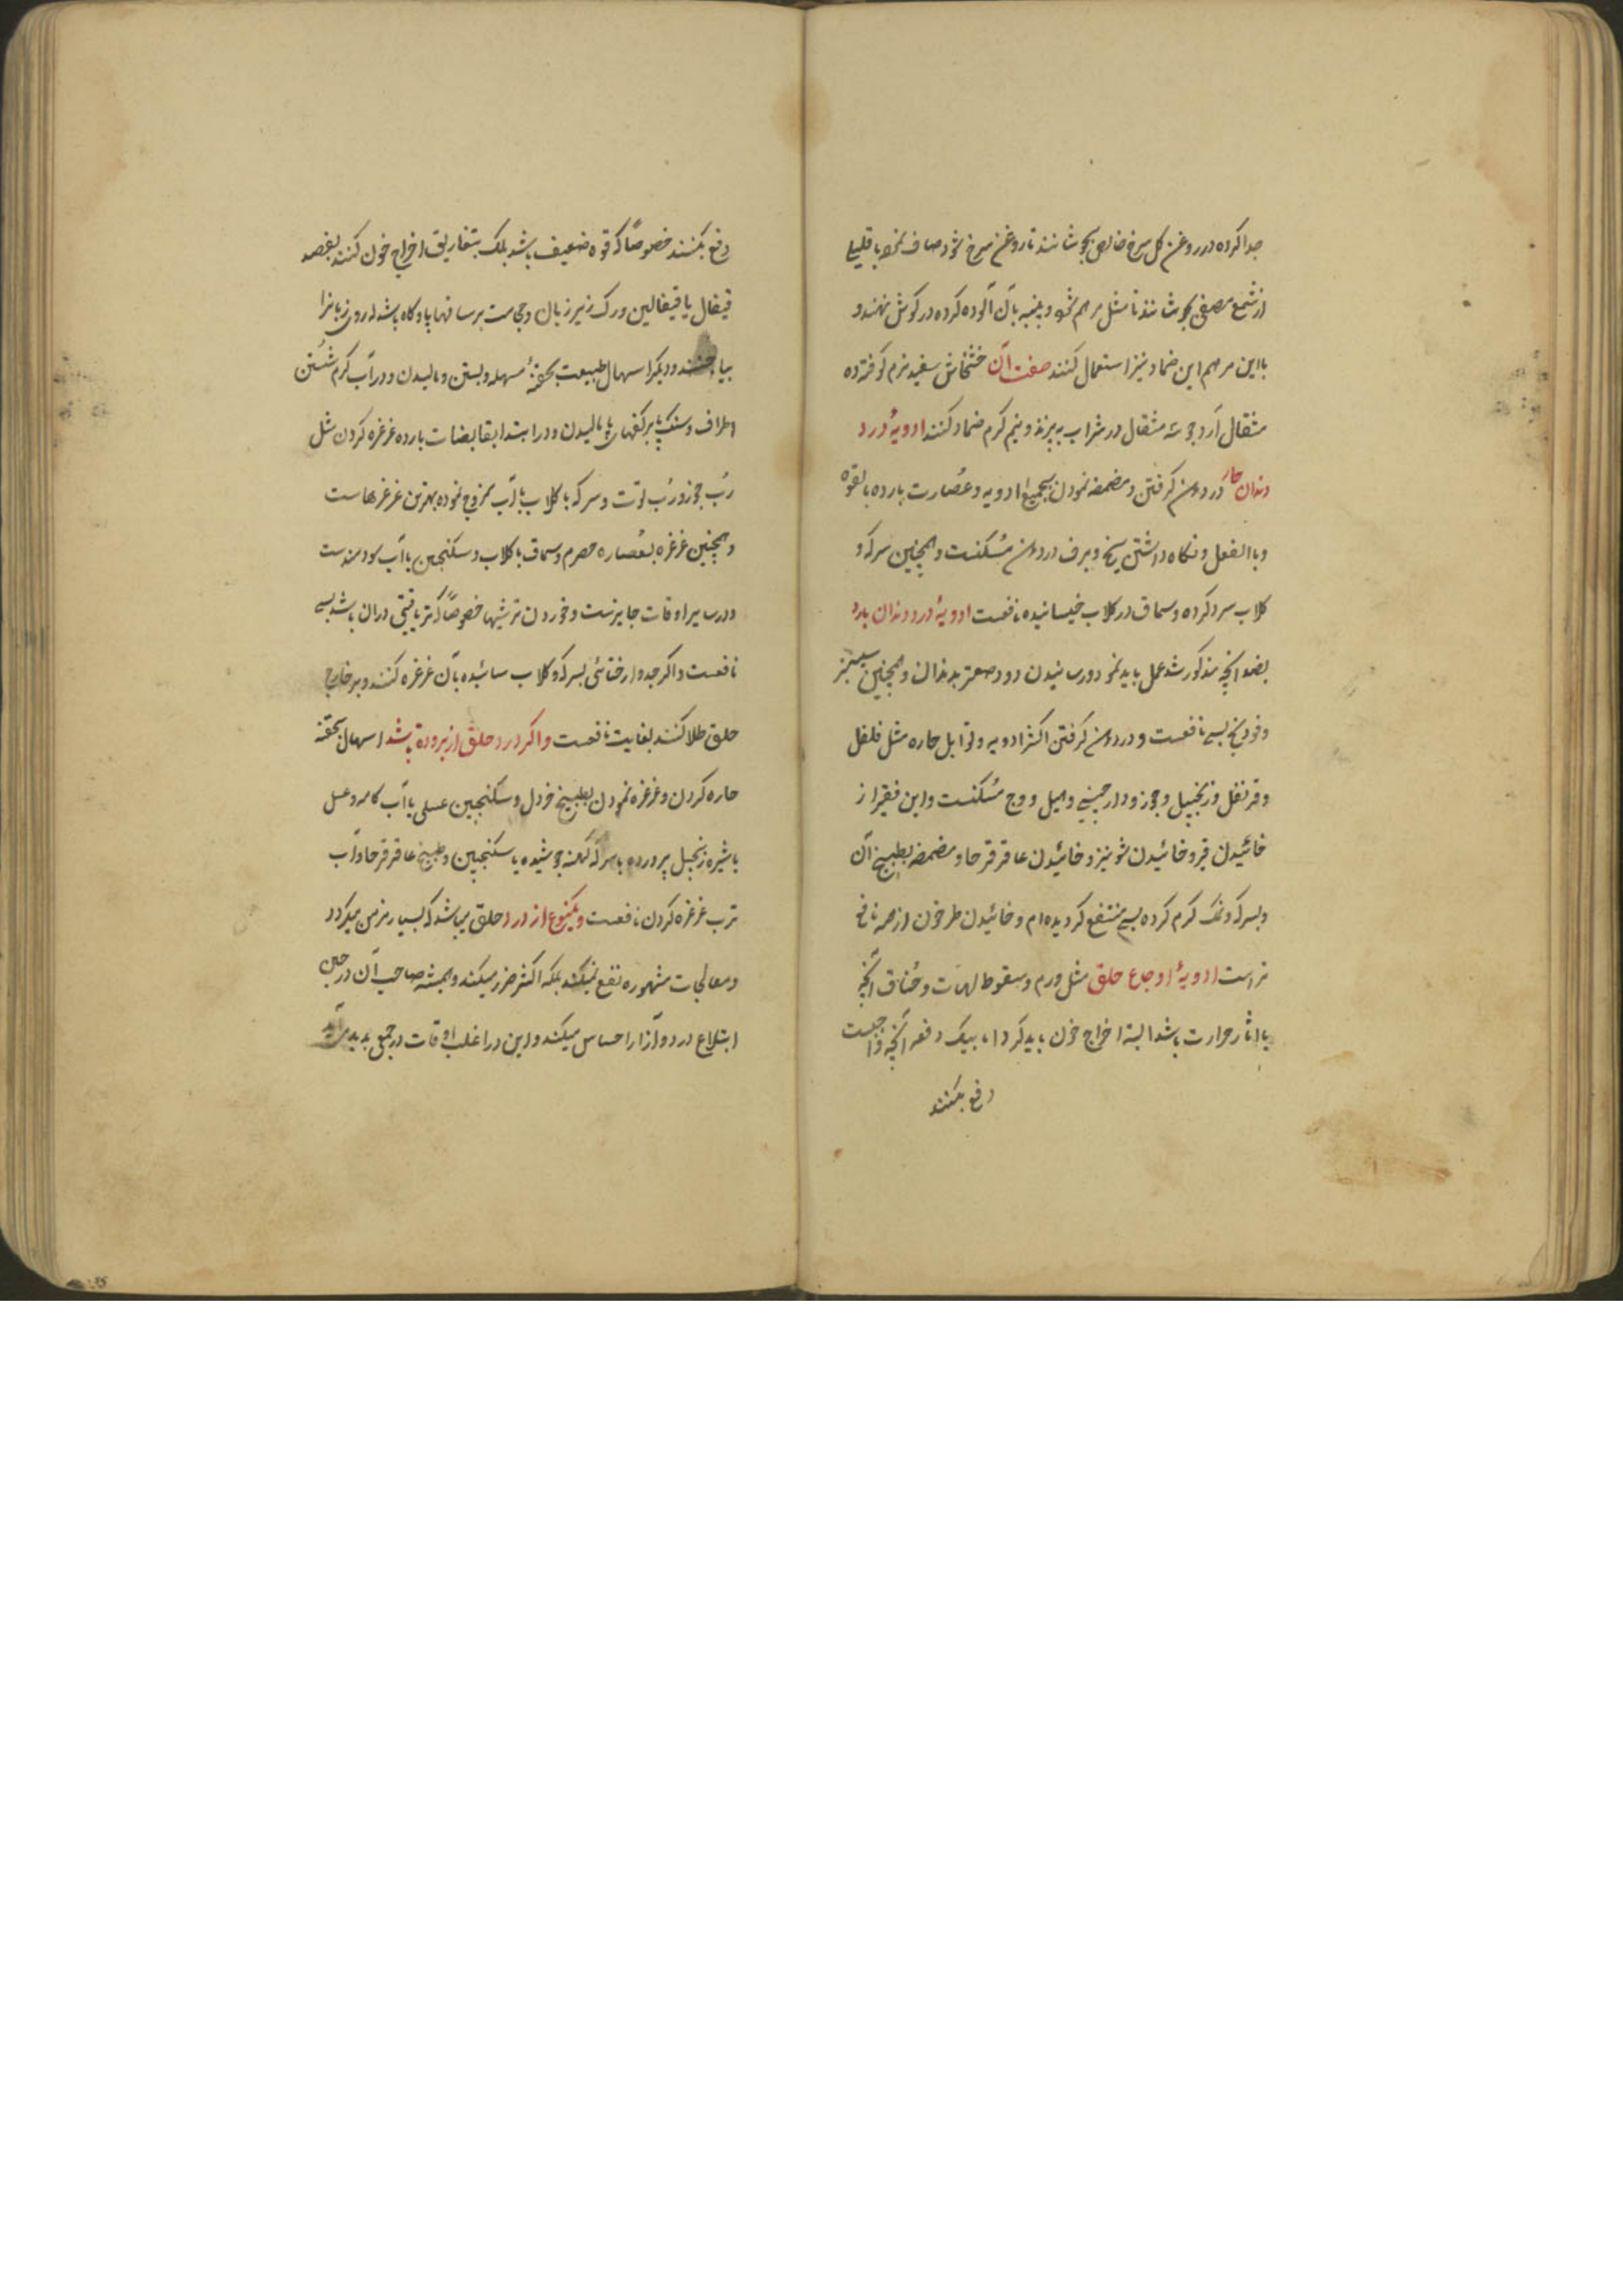 جدا کرده در روغن کل سرخ خالص بجوشانند تا روغن سرخ شود صاف نموده با قلیلی
از شمع مصفی بجوشانند تا مثل مرهم شود و پنبه بآن آلوده کرده در کوش نهند و
با این مرهم این ضماد نیز استعمال کنند صفت آن خشخاش سفید نرم کوفته ده
مثقال آرد جو سه مثقال در شراب بپزند و نیم کرم ضماد کنند ادویهٔ درد
دندان حار در دهن کرفتن و مضمضه نمودن بجمیع ادویه و عُصارت بارده بالقوه
و باالفعل و نکاه داشتن یخ و برف در دهن مُسکنست و همچنین سرکه و
کلاب سرد کرده و سماق در کلاب خیسانیده نافعست ادویهٔ درد دندان بارد
بضد آنچه مذکور شد عمل باید نمود و رسانیدن دود صعتر بدندان و همچنین
و فودنج بسی نافعست و در دهن کرفتن اکثر ادویه و توابل حاره مثل فلفل
و قرنفل و زنجبیل و جوز و دارچینی و هیل و وج مُسکنست و این فقیر از
خائیدن قیر و خائیدن شونیز و خائیدن عاقرقرحا و مضمضه بطبیخ آن
و بسرکه و نمک کرم کرده بسی منتفع کردیده‌ام و خائیدن طرخون از همه نافع
تر است ادویهٔ اوجاع حلق مثل ورم و سقوط لهات و خُناق آنچه
با اثار حرارت باشد البتة اخراج خون باید کرد اما بیک دفعه آنچه واجبست
دفع نکنند
دفع نکنند خصوصاً که قوه ضعیف باشد بلک بتفاریق اخراج خون کنند بفصد
قیفال یا قیفالین و رک زیر زبان و حجامت بر ساقها با و کاه باشد که روی زبانرا
بیاجنند و دیکر اسهال طبیعت بحقنهٔ مسهله و بستن و مالیدن و در آب کرم شستن
اطراف و سنک پا بر کفهای پا مالیدن و در ابتدا بقابضات بارده غرغره کردن مثل
رُب جوز و رُب توت و سرکه با کلاب یا با آب ممزوج نموده بهترین غرغرهاست
و همچنین غرغره بعُصاره حصرم و سماق با کلاب و سکنجبین با آب سودمندست
و در سایر اوقات جایزست و خوردن ترشیها خصوصاً که تریاقیتی در ان باشد بسی
نافعست و اکر جدوار ختائی بسرکه و کلاب سائیده بآن غرغره کنند و بر خارج
حلق طلا کنند بغایت نافعست و اکر درد حلق از برودة باشد اسهال بحقنه
حاره کردن و غرغره نمودن بطبیخ خردل و سکنجبین عسلی یا آب کامه و عسل
یا شیره زنجبیل پرورده یا سرکه کهنه جوشیده یا سکنجبین و طبیخ عاقرقرحا و آب
ترب غرغره کردن نافعست و یکنوع از درد حلق میباشد که بسیار مزمن میکردد
و معالجات مشهوره نفع نمیکند بلکه اکثر ضرر میکند و همیشه صاحب آن در حین
ابتلاع درد و آزار احساس میکند و این در اغلب اوقات در جمعی پدید می‌آید